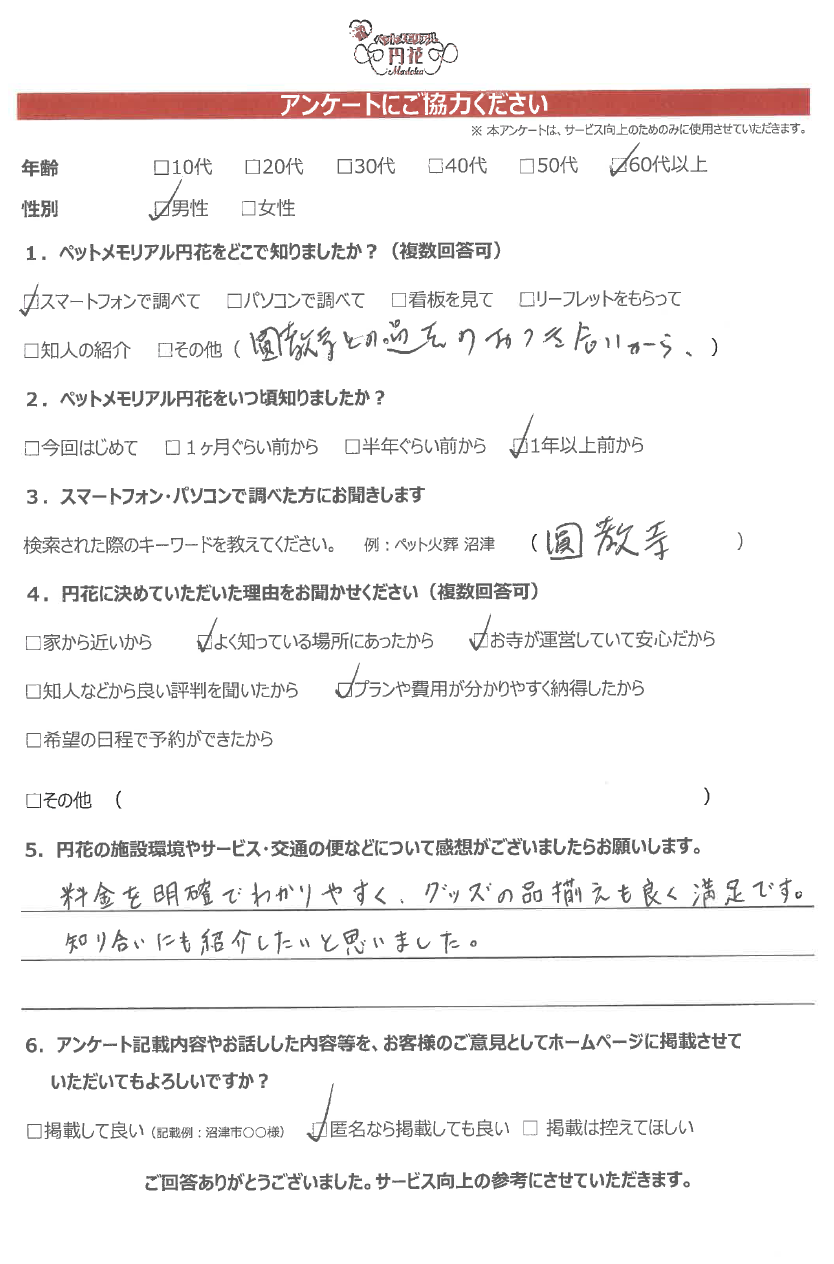 ペットメモリアル
円花
Madoka
アンケートにご協力ください
※ 本アンケートは、サービス向上のためのみに使用させていただきます。
年齢 □10代 □20代 □30代 □40代 □50代 ☑60代以上
性別 ☑男性 □女性
1．ペットメモリアル円花をどこで知りましたか？（複数回答可）
☑スマートフォンで調べて □パソコンで調べて □看板を見て □リーフレットをもらって
□知人の紹介 □その他（圓教寺との過去のおつき合いから、）
2．ペットメモリアル円花をいつ頃知りましたか？
□今回はじめて □1ヶ月ぐらい前から □半年ぐらい前から ☑1年以上前から
3．スマートフォン・パソコンで調べた方にお聞きします
検索された際のキーワードを教えてください。 例：ペット火葬 沼津 （圓教寺）
4．円花に決めていただいた理由をお聞かせください（複数回答可）
□家から近いから ☑よく知っている場所にあったから ☑お寺が運営していて安心だから
□知人などから良い評判を聞いたから ☑プランや費用が分かりやすく納得したから
□希望の日程で予約ができたから
□その他 （ ）
5．円花の施設環境やサービス・交通の便などについて感想がございましたらお願いします。
料金を明確でわかりやすく、グッズの品揃えも良く満足です。
知り合いにも紹介したいと思いました。
6．アンケート記載内容やお話しした内容等を、お客様のご意見としてホームページに掲載させて
いただいてもよろしいですか？
□掲載して良い（記載例：沼津市○○様） ☑匿名なら掲載しても良い □ 掲載は控えてほしい
ご回答ありがとうございました。サービス向上の参考にさせていただきます。